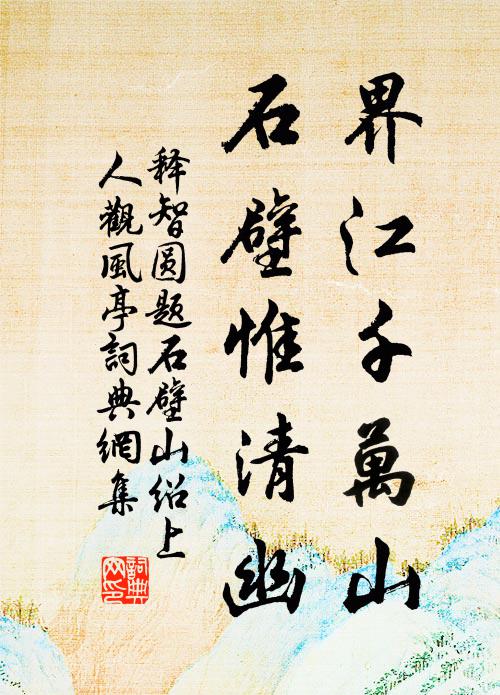 界江千萬山
石壁惟清幽
释智圆题石壁山绍上
人觀風亭詞典網集
詞典
网印